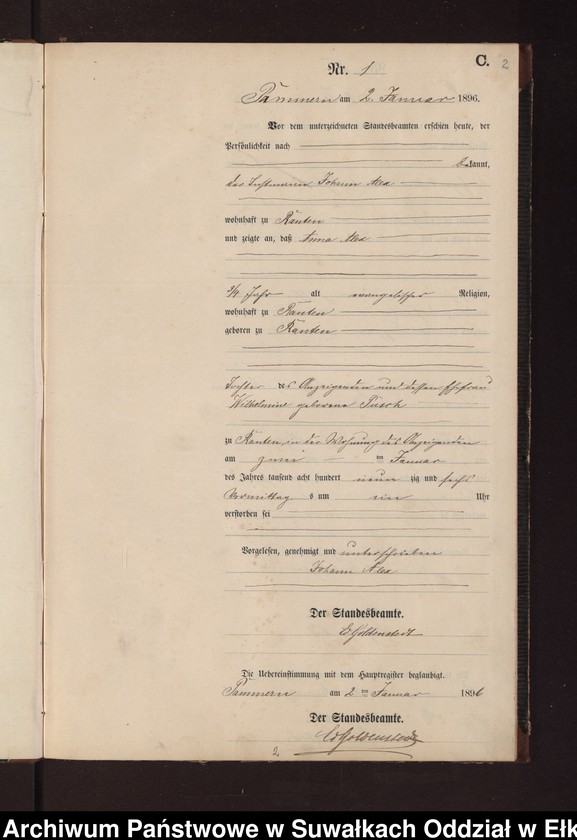 C.
2
Nr. 1
Pammern am 2. Januar 1896.
Vor dem unterzeichneten Standesbeamten erschien heute, der
Persönlichkeit nach
bekannt,
der Losmann Johann Alex
wohnhaft zu Ranten
und zeigte an, daß Anna Alex
3/4 Jahr alt evangelischer Religion,
wohnhaft zu Ranten
geboren zu Ranten
Tochter des Anzeigenden und dessen Ehefrau
Wilhelmine geborene Pusch
zu Ranten, in der Wohnung des Anzeigenden
am zwei ten Januar
des Jahres tausend acht hundert neun zig und sechs
Vormittag s um ein Uhr
verstorben sei
Vorgelesen, genehmigt und unterschrieben
Johann Alex
Der Standesbeamte.
E Goldenstedt
Die Uebereinstimmung mit dem Hauptregister beglaubigt.
Pammern am 2 ten Januar 1896
Der Standesbeamte.
E Goldenstedt
2
Archiwum Państwowe w Suwałkach Oddział w Ełk